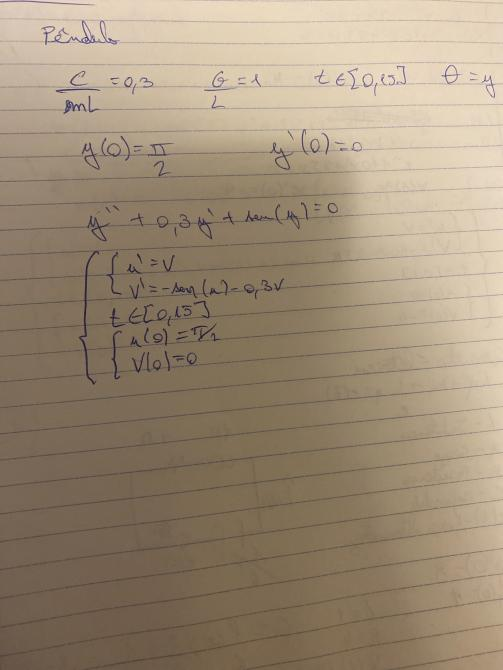 Péndulo
C/mL = 0,3 G/L = 1 t ∈ [0,15] θ = y
y(0) = π/2 y'(0) = 0
y'' + 0,3y' + sen(y) = 0
u' = v
v' = -sen(u) - 0,3v
t ∈ [0,15]
u(0) = π/2
v(0) = 0